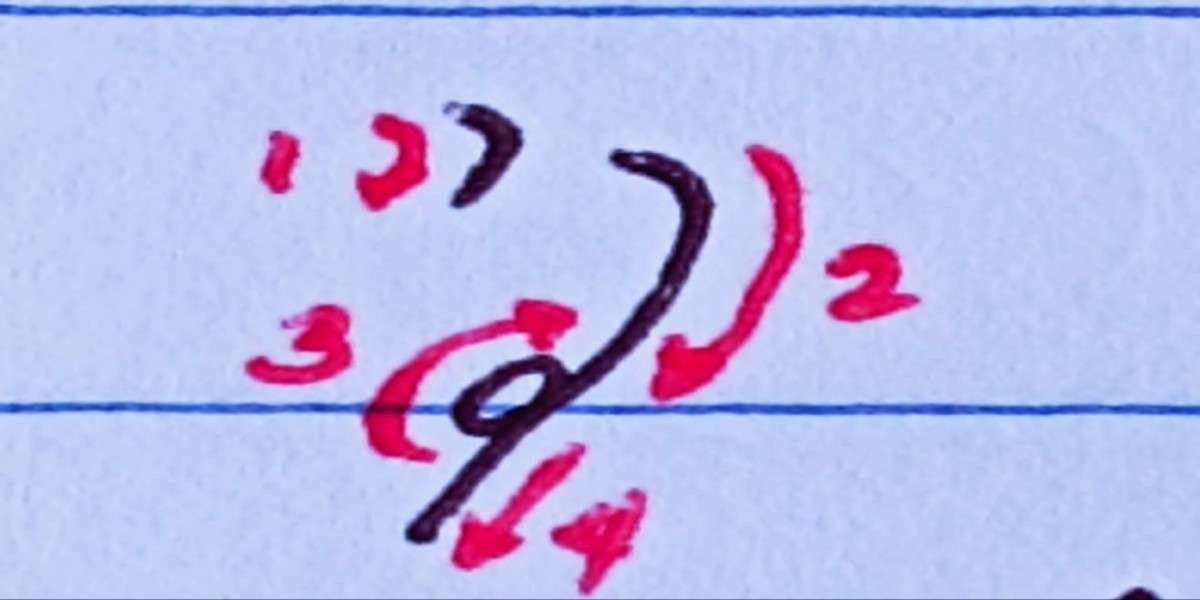 1 ގ 2
3
4